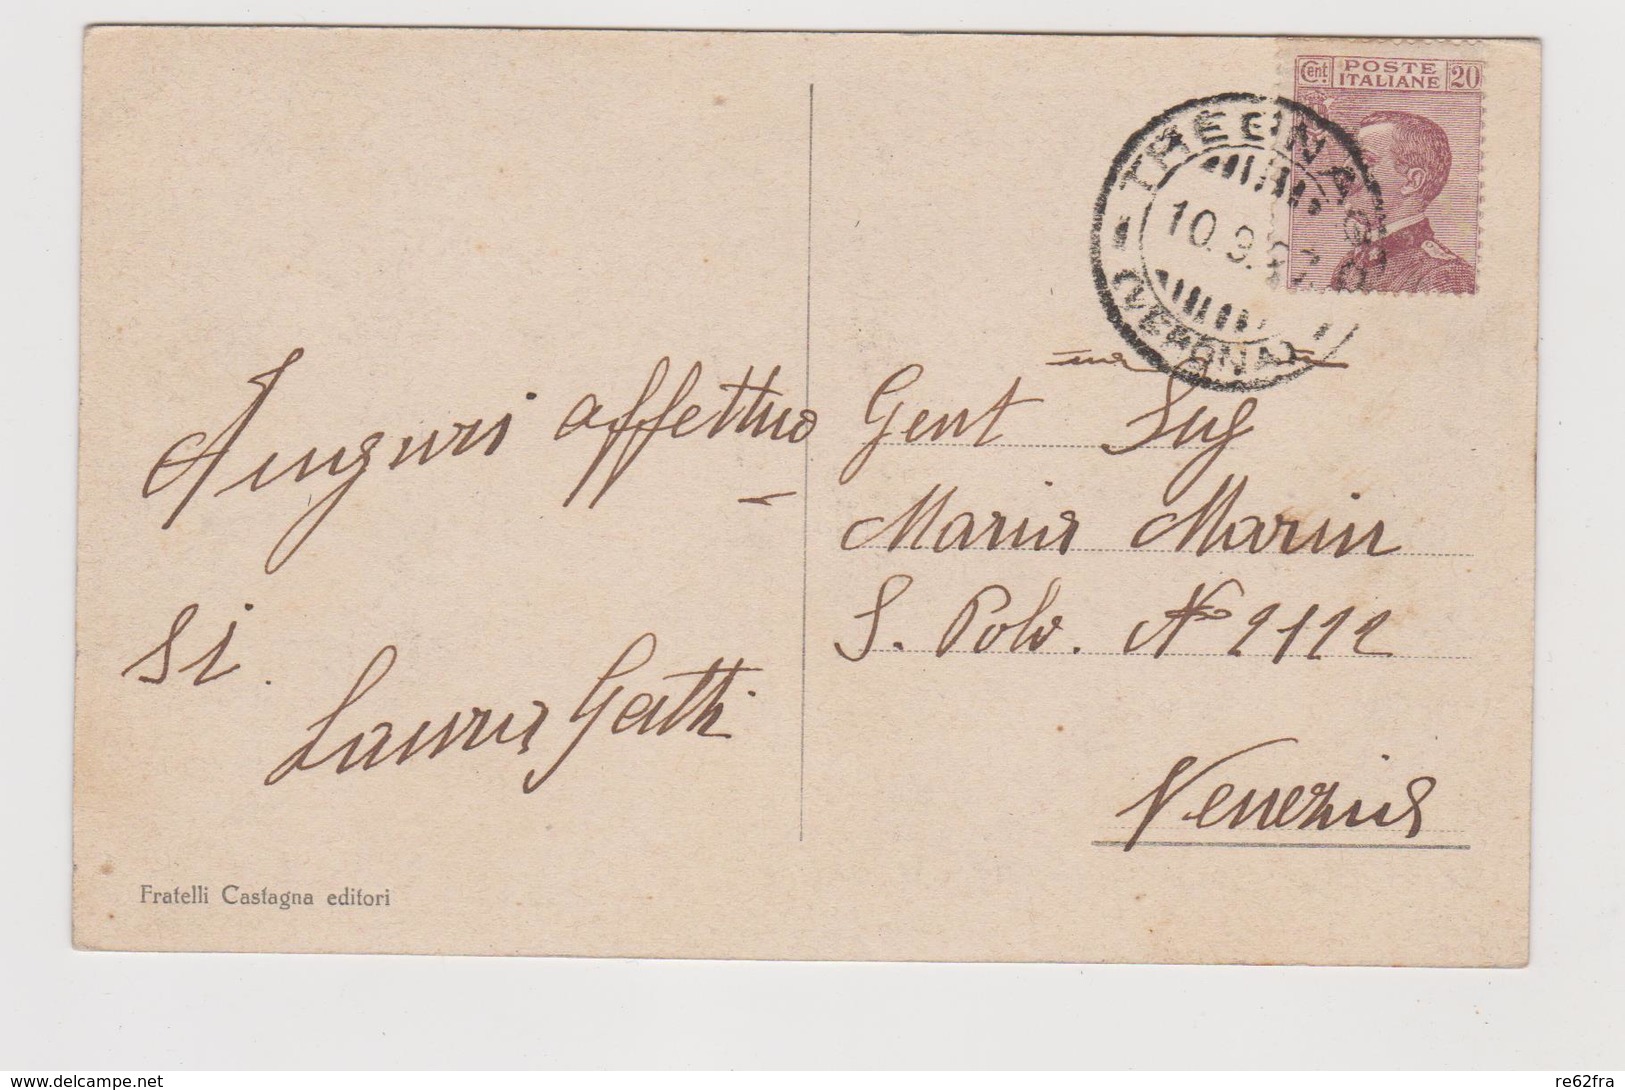 Cent. POSTE ITALIANE 20
TREGNAGO
10.9.27.9
(VERONA)
Auguri affettuo
si.
Laura Gatti
Gent^ma Sig^na
Maria Marin
S. Polo. N° 2122
Venezia
Fratelli Castagna editori
www.delcampe.net
re62fra